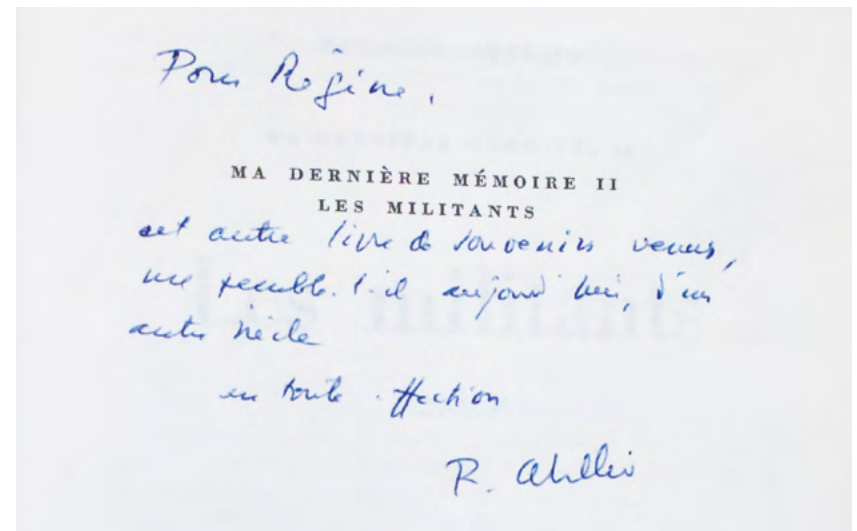 Pour Régine,
MA DERNIÈRE MÉMOIRE II
LES MILITANTS
cet autre livre de souvenirs venus,
me semble-t-il aujourd'hui, d'un
autre siècle
en toute affection
R. Abellio